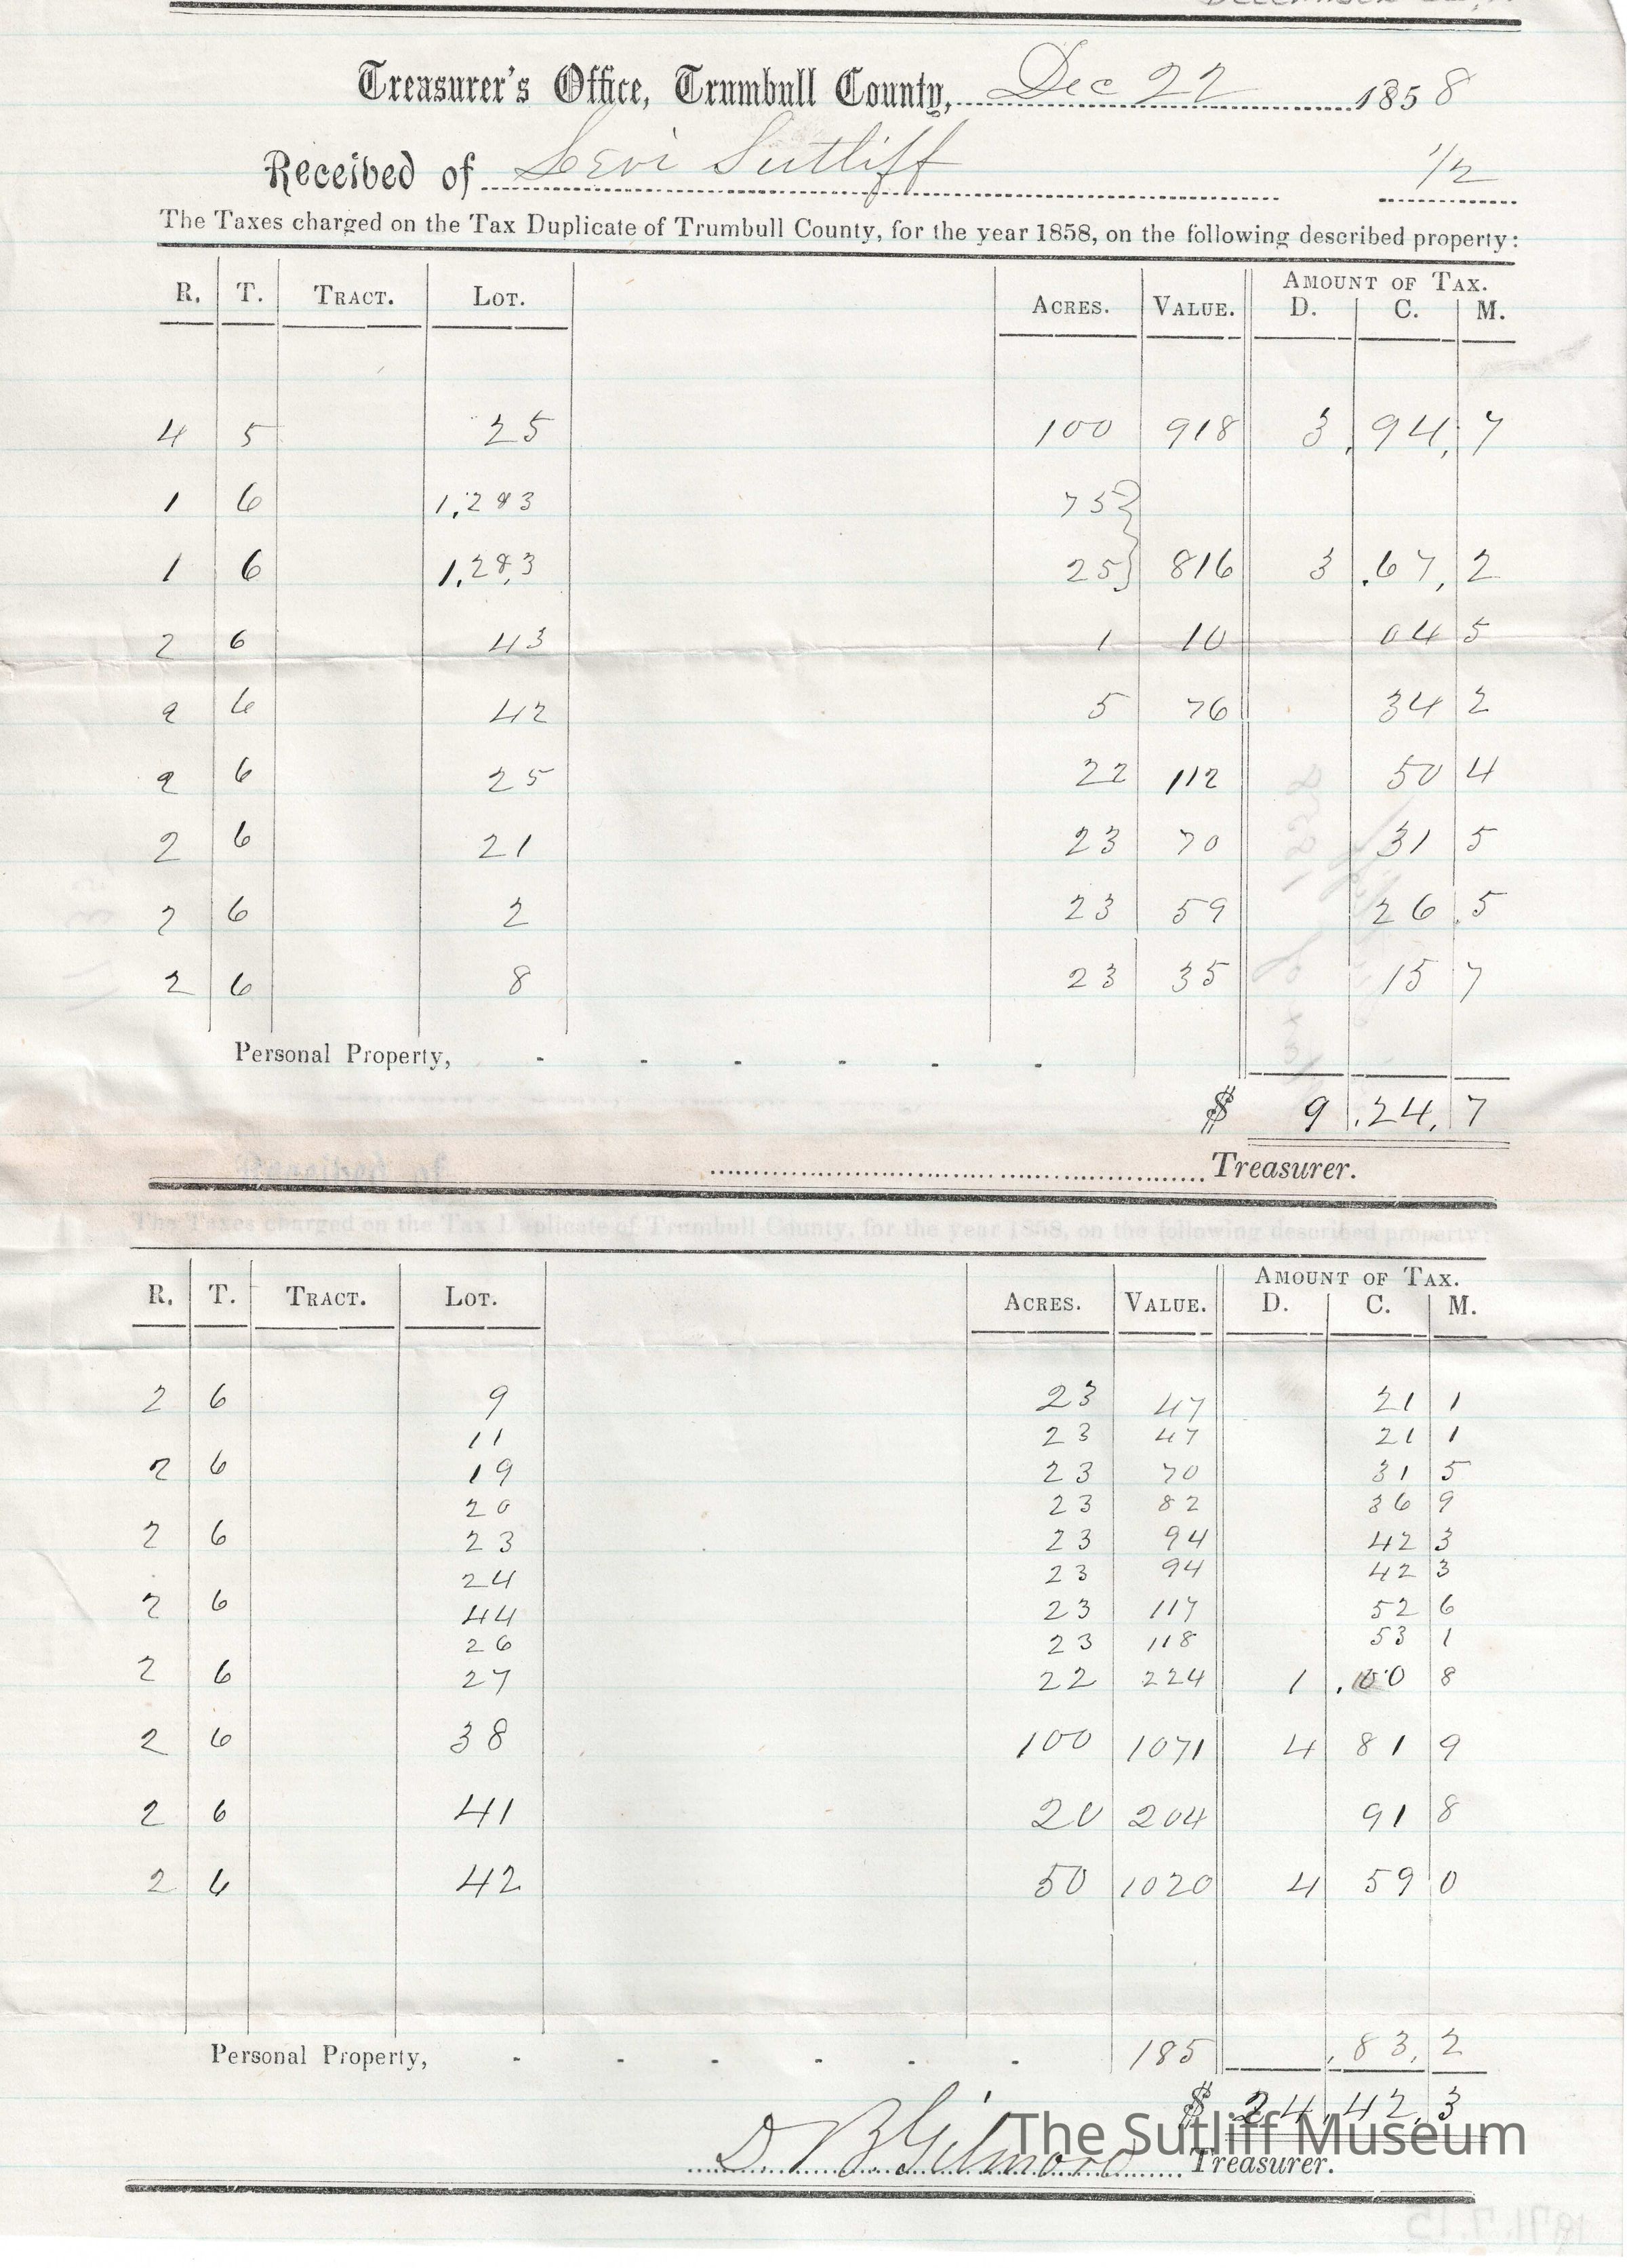 Treasurer's Office, Trumbull County, Dec 22 1858
Received of Levi Sutliff 1/2
The Taxes charged on the Tax Duplicate of Trumbull County, for the year 1858, on the following described property:
AMOUNT OF TAX.
R. T. TRACT. LOT. ACRES. VALUE. D. C. M.
4 5 25 100 918 3.94,7
1 6 1,2&3 75
1 6 1,2&3 25 816 3.67,2
2 6 43 1 10 04 5
2 6 42 5 76 34 2
2 6 25 22 112 50 4
2 6 21 23 70 31 5
2 6 2 23 59 26.5
2 6 8 23 35 15 7
Personal Property, - - - - - -
$ 9.24,7
Treasurer.
Received of
The Taxes charged on the Tax Duplicate of Trumbull County, for the year 1858, on the following described property:
AMOUNT OF TAX.
R. T. TRACT. LOT. ACRES. VALUE. D. C. M.
2 6 9 23 47 21 1
11 23 47 21 1
2 6 19 23 70 31 5
20 23 82 36 9
2 6 23 23 94 42 3
24 23 94 42 3
2 6 44 23 117 52 6
26 23 118 53 1
2 6 27 22 224 1.00 8
2 6 38 100 1071 4 81 9
2 6 41 20 204 91 8
2 6 42 50 1020 4 59 0
Personal Property, - - - - - - 185 .83,2
$ 24,42,3
The Sutliff Museum
D B Gilmore Treasurer.